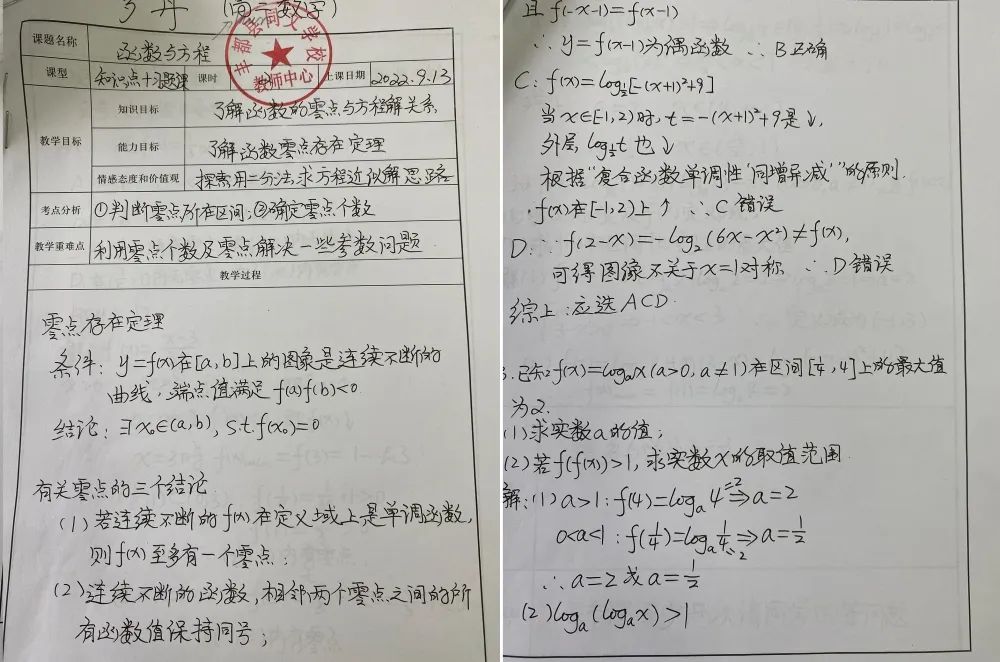 (高一数学)
课题名称 函数与方程
课型 知识点+习题课 课时 上课日期 2022.9.13
丰都县同文学校
教师中心
教学目标 知识目标 了解函数的零点与方程解关系
能力目标 了解函数零点存在定理
情感态度和价值观 探索用二分法求方程近似解思路
考点分析 ①判断零点所在区间;②确定零点个数
教学重难点 利用零点个数及零点解决一些参数问题
教学过程
零点存在定理
条件: y=f(x)在[a,b]上的图象是连续不断的
曲线,端点值满足 f(a)f(b)<0
结论: ∃x₀∈(a,b), s.t.f(x₀)=0
有关零点的三个结论
(1)若连续不断的f(x)在定义域上是单调函数,
则f(x)至多有一个零点;
(2)连续不断的函数,相邻两个零点之间的所
有函数值保持同号;
且 f(-x-1)=f(x-1)
∴ y=f(x-1)为偶函数 ∴B正确
C: f(x)=log½[-(x+1)²+9]
当x∈[-1,2)时,t=-(x+1)²+9是↓,
外层log½t也↓
根据“复合函数单调性‘同增异减’”的原则.
f(x)在[-1,2)上↑ ∴C错误
D: ∵f(2-x)=-log₂(6x-x²)≠f(x),
可得图像不关于x=1对称 ∴D错误
综上:应选ACD.
3.已知f(x)=logₐx(a>0,a≠1)在区间[¼,4]上的最大值
为2.
(1)求实数a的值;
(2)若f(f(x))>1,求实数x的取值范围
解:(1)a>1:f(4)=logₐ4=2⇒a=2
0<a<1:f(¼)=logₐ¼=2⇒a=½
∴a=2或a=½
(2)logₐ(logₐx)>1